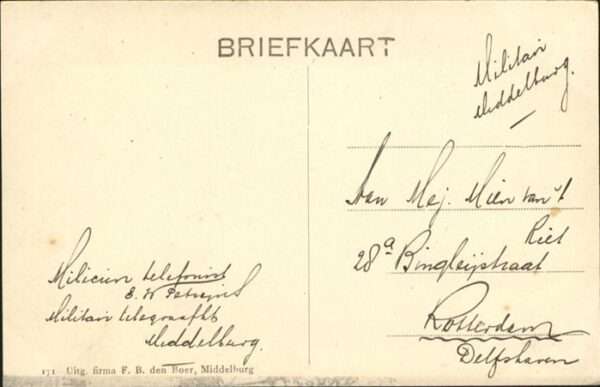 BRIEFKAART
Militair
Middelburg.
Aan Mej. Mien van 't
Riet
28a Bingleijstraat
Rotterdam
Delfshaven
Milicien telefonist
Militair telegraafkt
Middelburg.
171 Uitg. firma F. B. den Boer, Middelburg